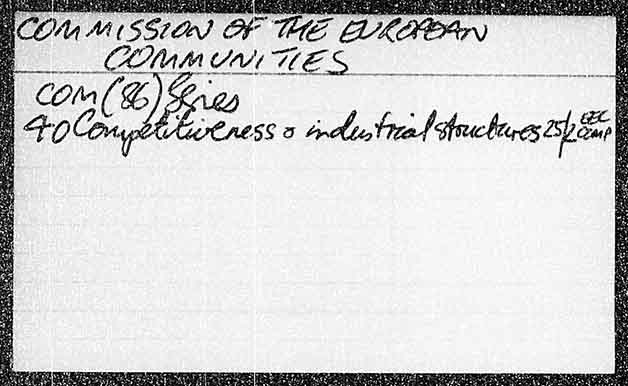 COMMISSION OF THE EUROPEAN
COMMUNITIES
COM(86) Series
40 Competitiveness & industrial structures 25/2 EEC
COMP